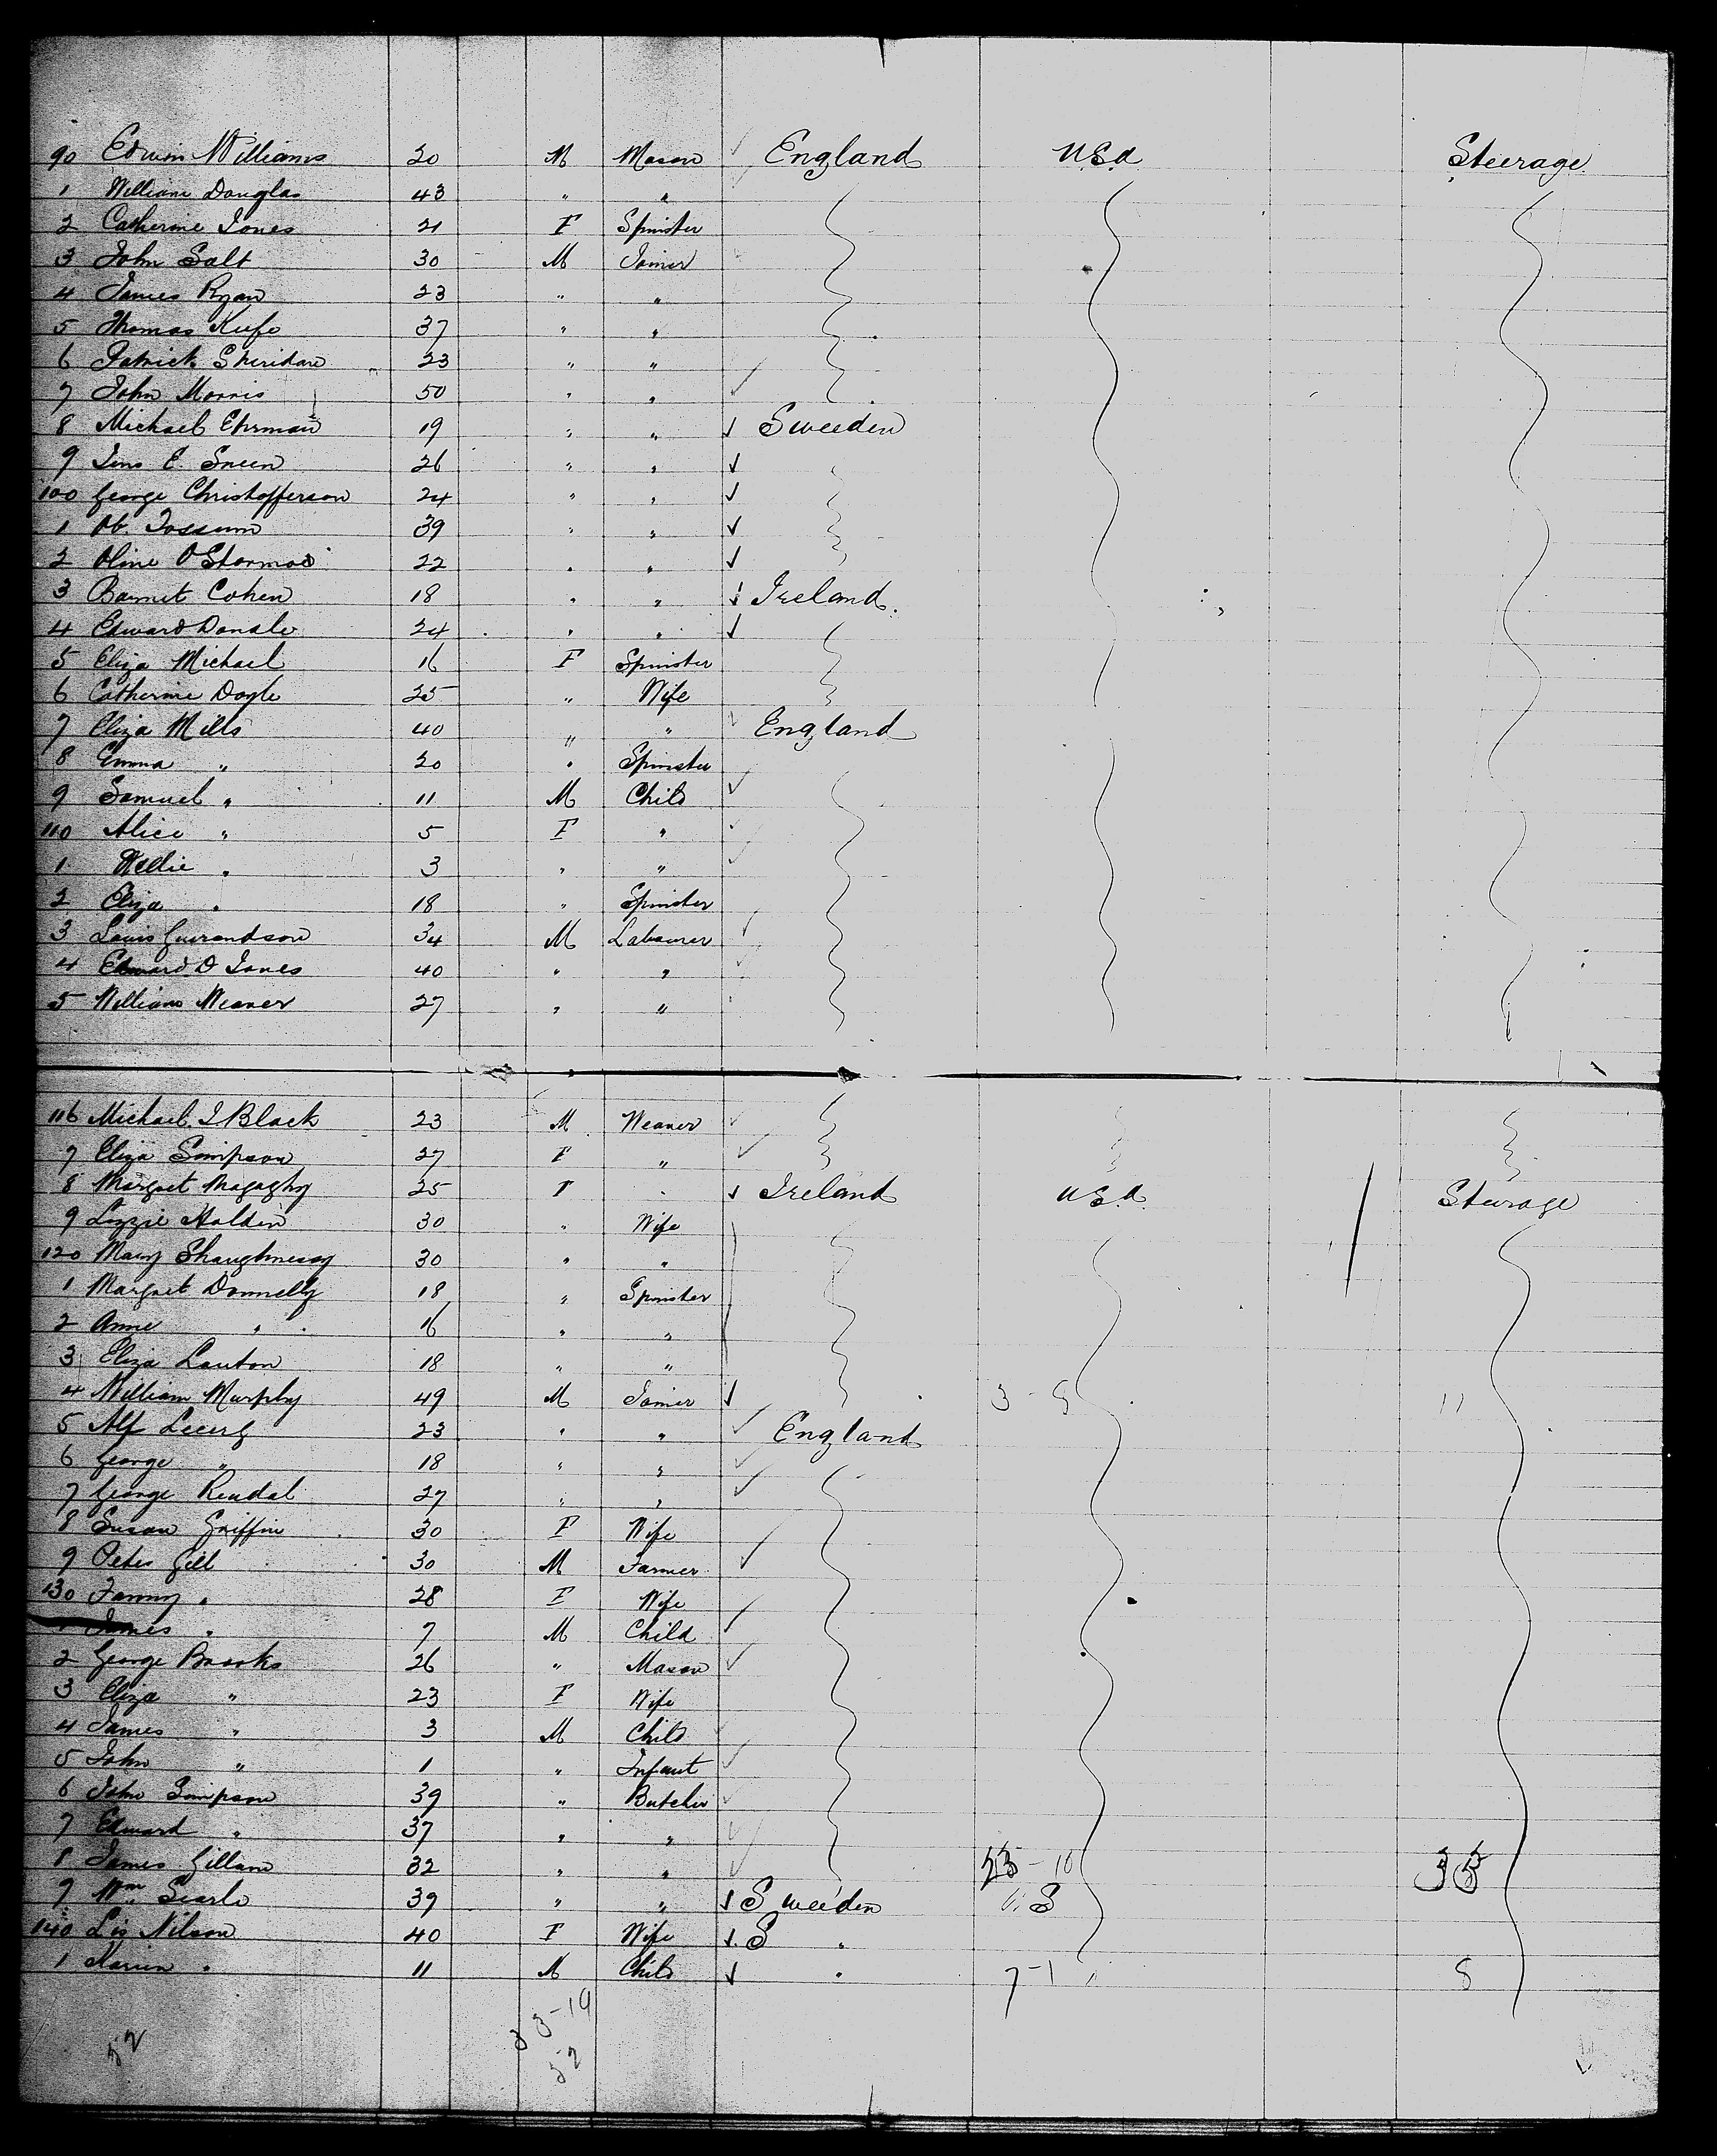 90 Edwin Williams 20 M Mason England U.S.A Steerage
1 William Douglas 43 " "
2 Catherine Jones 21 F Spinster
3 John Salt 30 M Joiner
4 James Ryan 23 " "
5 Thomas Kufe 37 " "
6 Patrick Sheridan 23 " "
7 John Morris 50 " "
8 Michael Ehrman 19 " " Sweeden
9 Jens E. Sneen 26 " "
100 George Christofferson 24 " "
1 Ob Tossum 39 " "
2 Oline O Stormoe 22 " "
3 Barnet Cohen 18 " " Ireland
4 Edward Donale 24 " "
5 Eliza Michael 16 F Spinster
6 Catherine Doyle 25 " Wife
7 Eliza Mills 40 " " England
8 Emma " 20 " Spinster
9 Samuel " 11 M Child
110 Alice " 5 F "
1 Nellie " 3 " "
2 Eliza " 18 " Spinster
3 Louis 34 M Labourer
4 Edward D Jones 40 " "
5 William Weaver 27 " "
116 Michael J Black 23 M Weaver
7 Eliza Simpson 27 F "
8 Margret Magaghy 25 F " Ireland U.S.A. Steerage
9 Lizzie Holden 30 " Wife
120 Mary Shaughnessy 30 " "
1 Margret Donnelly 18 " Spinster
2 Anne " 16 " "
3 Eliza Lauton 18 " "
4 William Murphy 49 M Joiner 11
5 Alf 23 " " England
6 George " 18 " "
7 George Rendal 27 " "
8 Susan Griffin 30 F Wife
9 Peter Gill 30 M Farmer
130 Fanny " 28 F Wife
James " 7 M Child
2 George Brooks 26 " Mason
3 Eliza " 23 F Wife
4 James " 3 M Child
5 John " 1 " Infant
6 John Simpson 39 " Butcher
7 Edward " 37 " "
8 James Gillam 32 " "
9 Wm Searle 39 " " Sweeden
140 Lis Nilson 40 F Wife S "
1 Karin " 11 M Child " 7-1 8
3-19
52
52